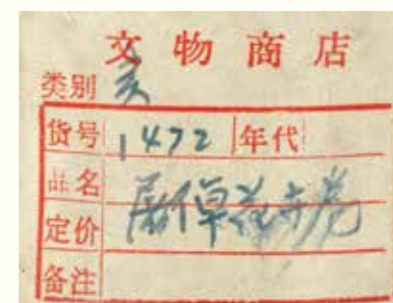 文物商店
类别
货号 1472 年代
品名
定价
备注